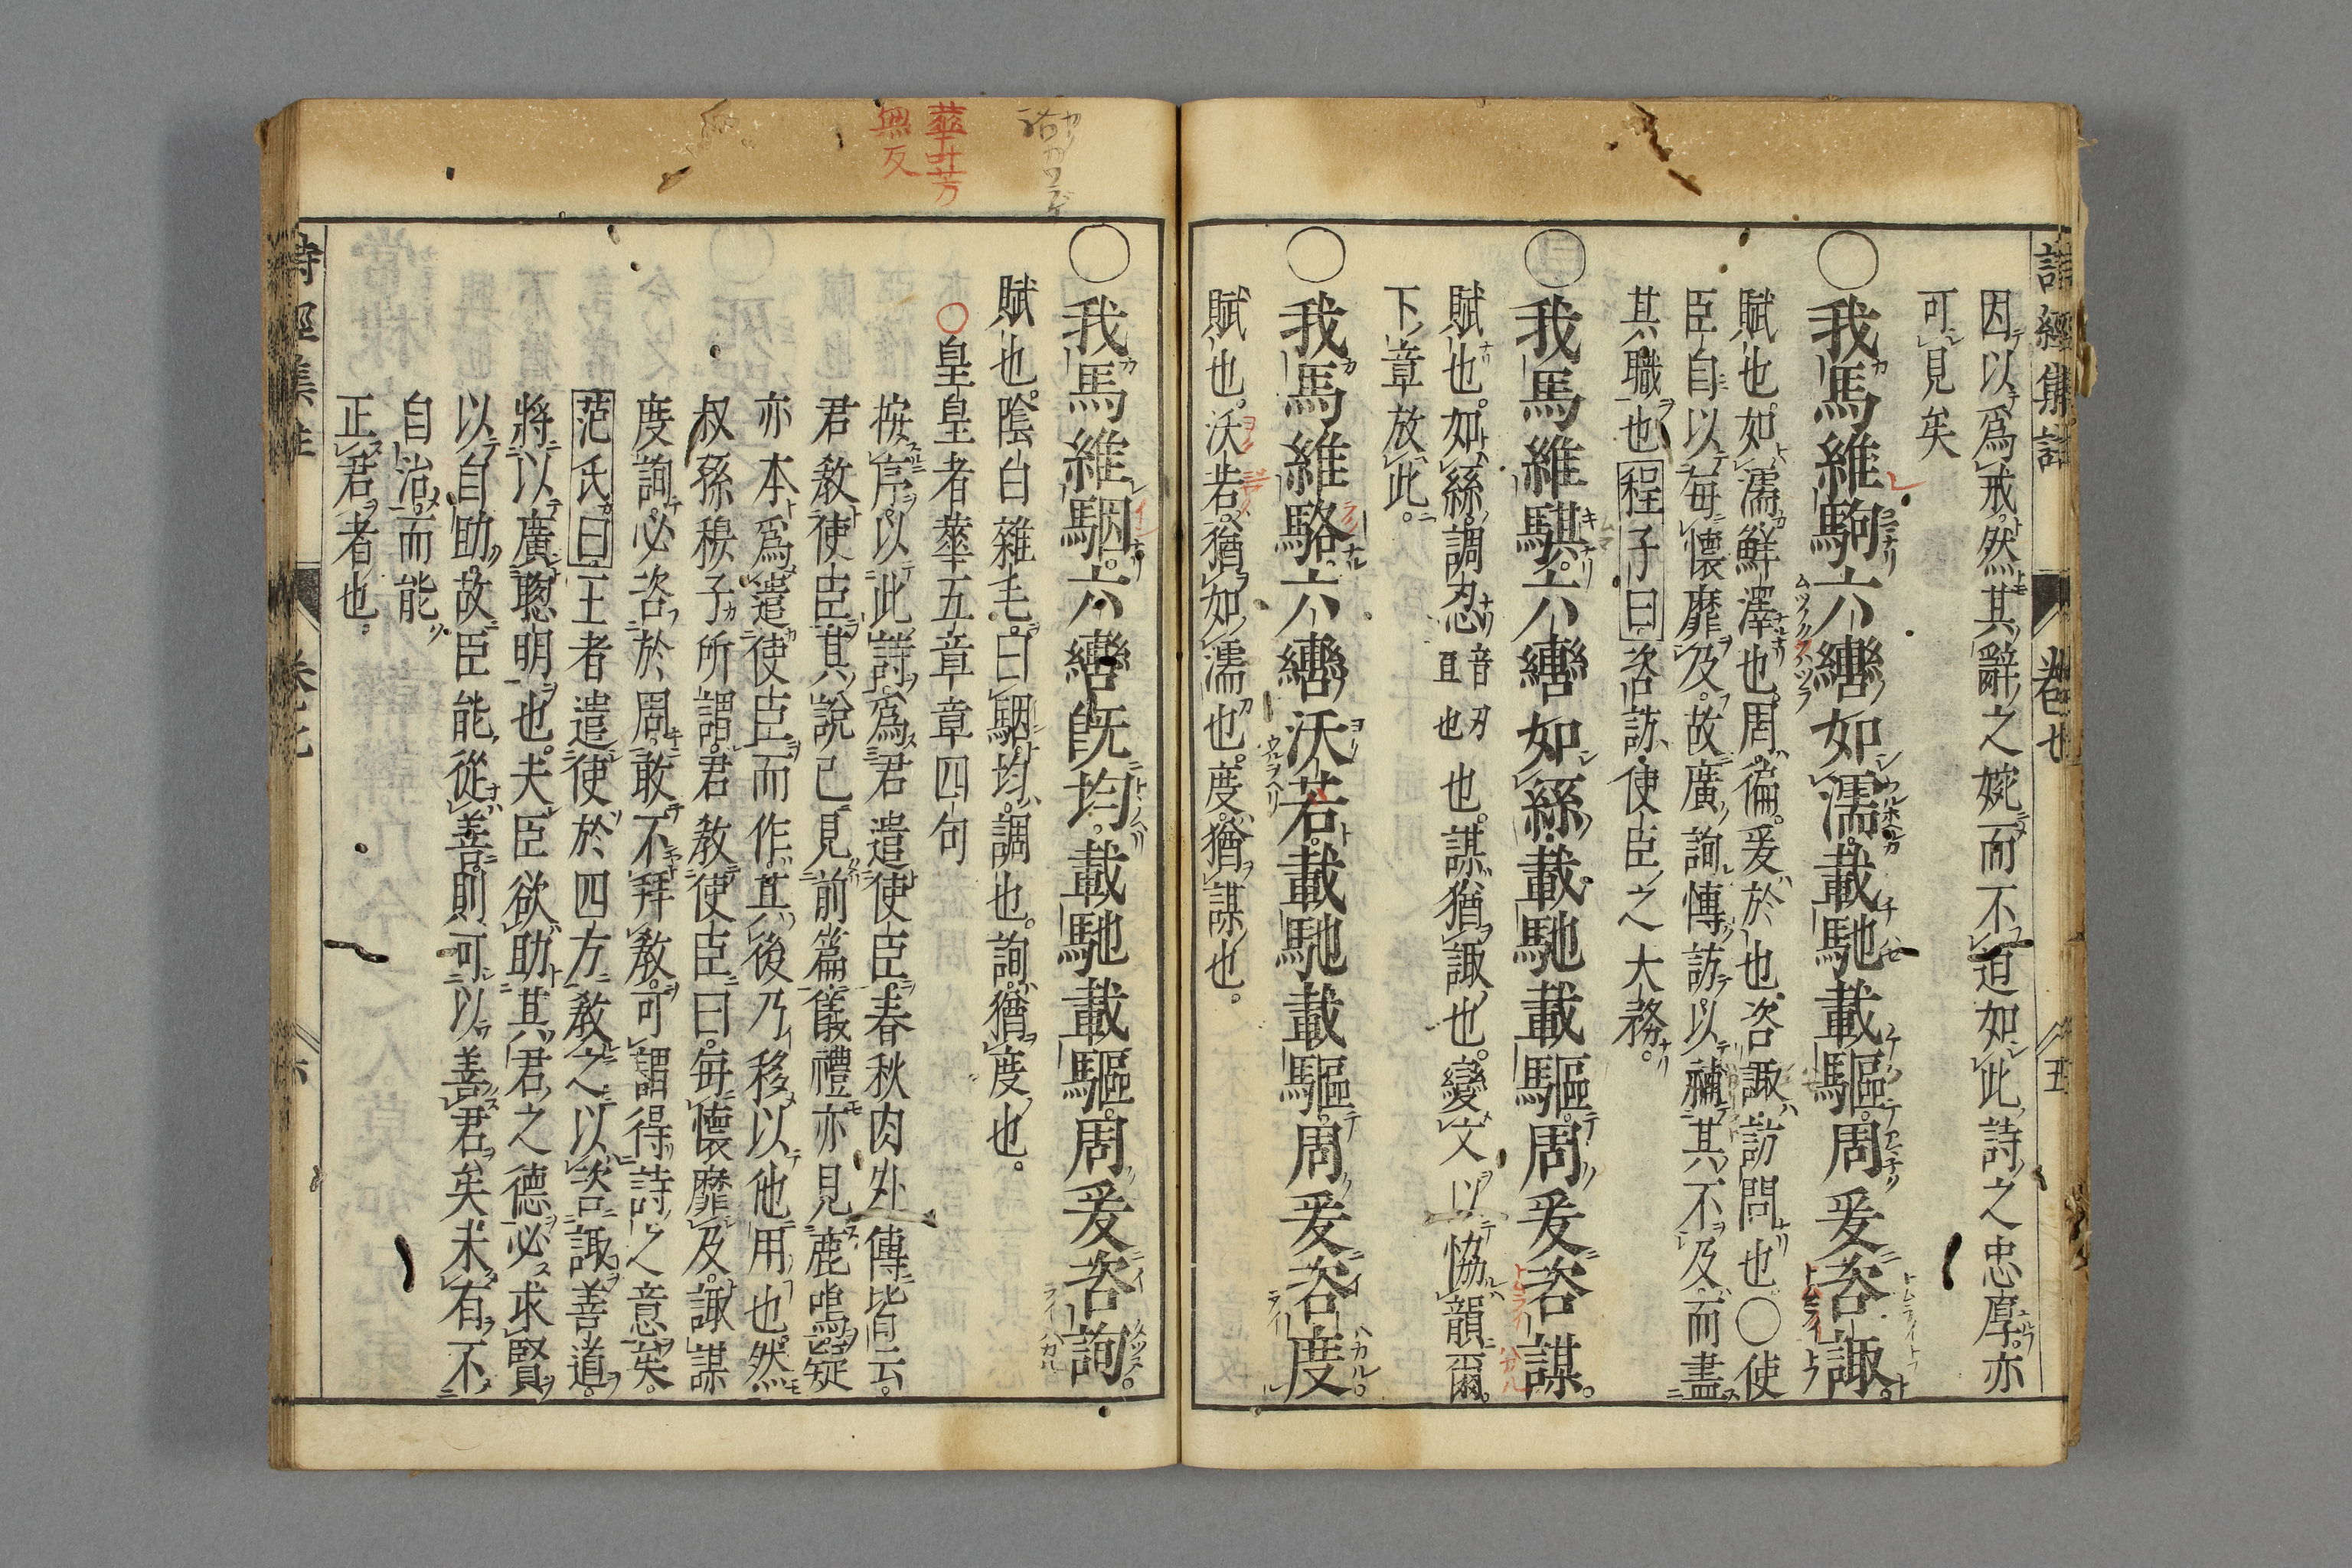 詩經集註 卷七 五
因以爲戒。然其辭之婉而不迫如此。詩之忠厚。亦
可見矣
○我馬維駒六轡如濡。載馳載驅。周爰咨諏。
賦也。如濡鮮澤也。周徧。爰於也。咨諏訪問也○使
臣自以每懷靡及。故廣詢愽訪。以補其不及。而盡
其職也程子曰。咨訪使臣之大務。
○我馬維騏。六轡如絲。載馳載驅。周爰咨謀。
賦也。如絲。調忍音刃直也也。謀猶諏也。變文以恊韻爾。
下章放此。
○我馬維駱。六轡沃若。載馳載驅。周爰咨度。
賦也。沃若。猶如濡也。度。猶謀也。
○我馬維駰。六轡旣均。載馳載驅。周爰咨詢。
賦也。陰白雜毛。曰駰。均。調也。詢。猶度也。
○皇皇者華五章章四句
按序。以此詩爲君遣使臣。春秋內外傳皆云。
君敎使臣。其說已見前篇。儀禮亦見鹿鳴。疑
亦本爲遣使臣而作。其後乃移以他用也。然
叔孫穆子所謂。君敎使臣曰。每懷靡及。諏謀
度詢。必咨於周。敢不拜敎。可謂得詩之意矣。
范氏曰。王者遣使於四方。敎之以咨諏善道。
將以廣聰明也。夫臣欲助其君之德。必求賢
以自助。故臣能從善。則可以善君矣未有不
自治而能
正君者也。
華叶芳
無反